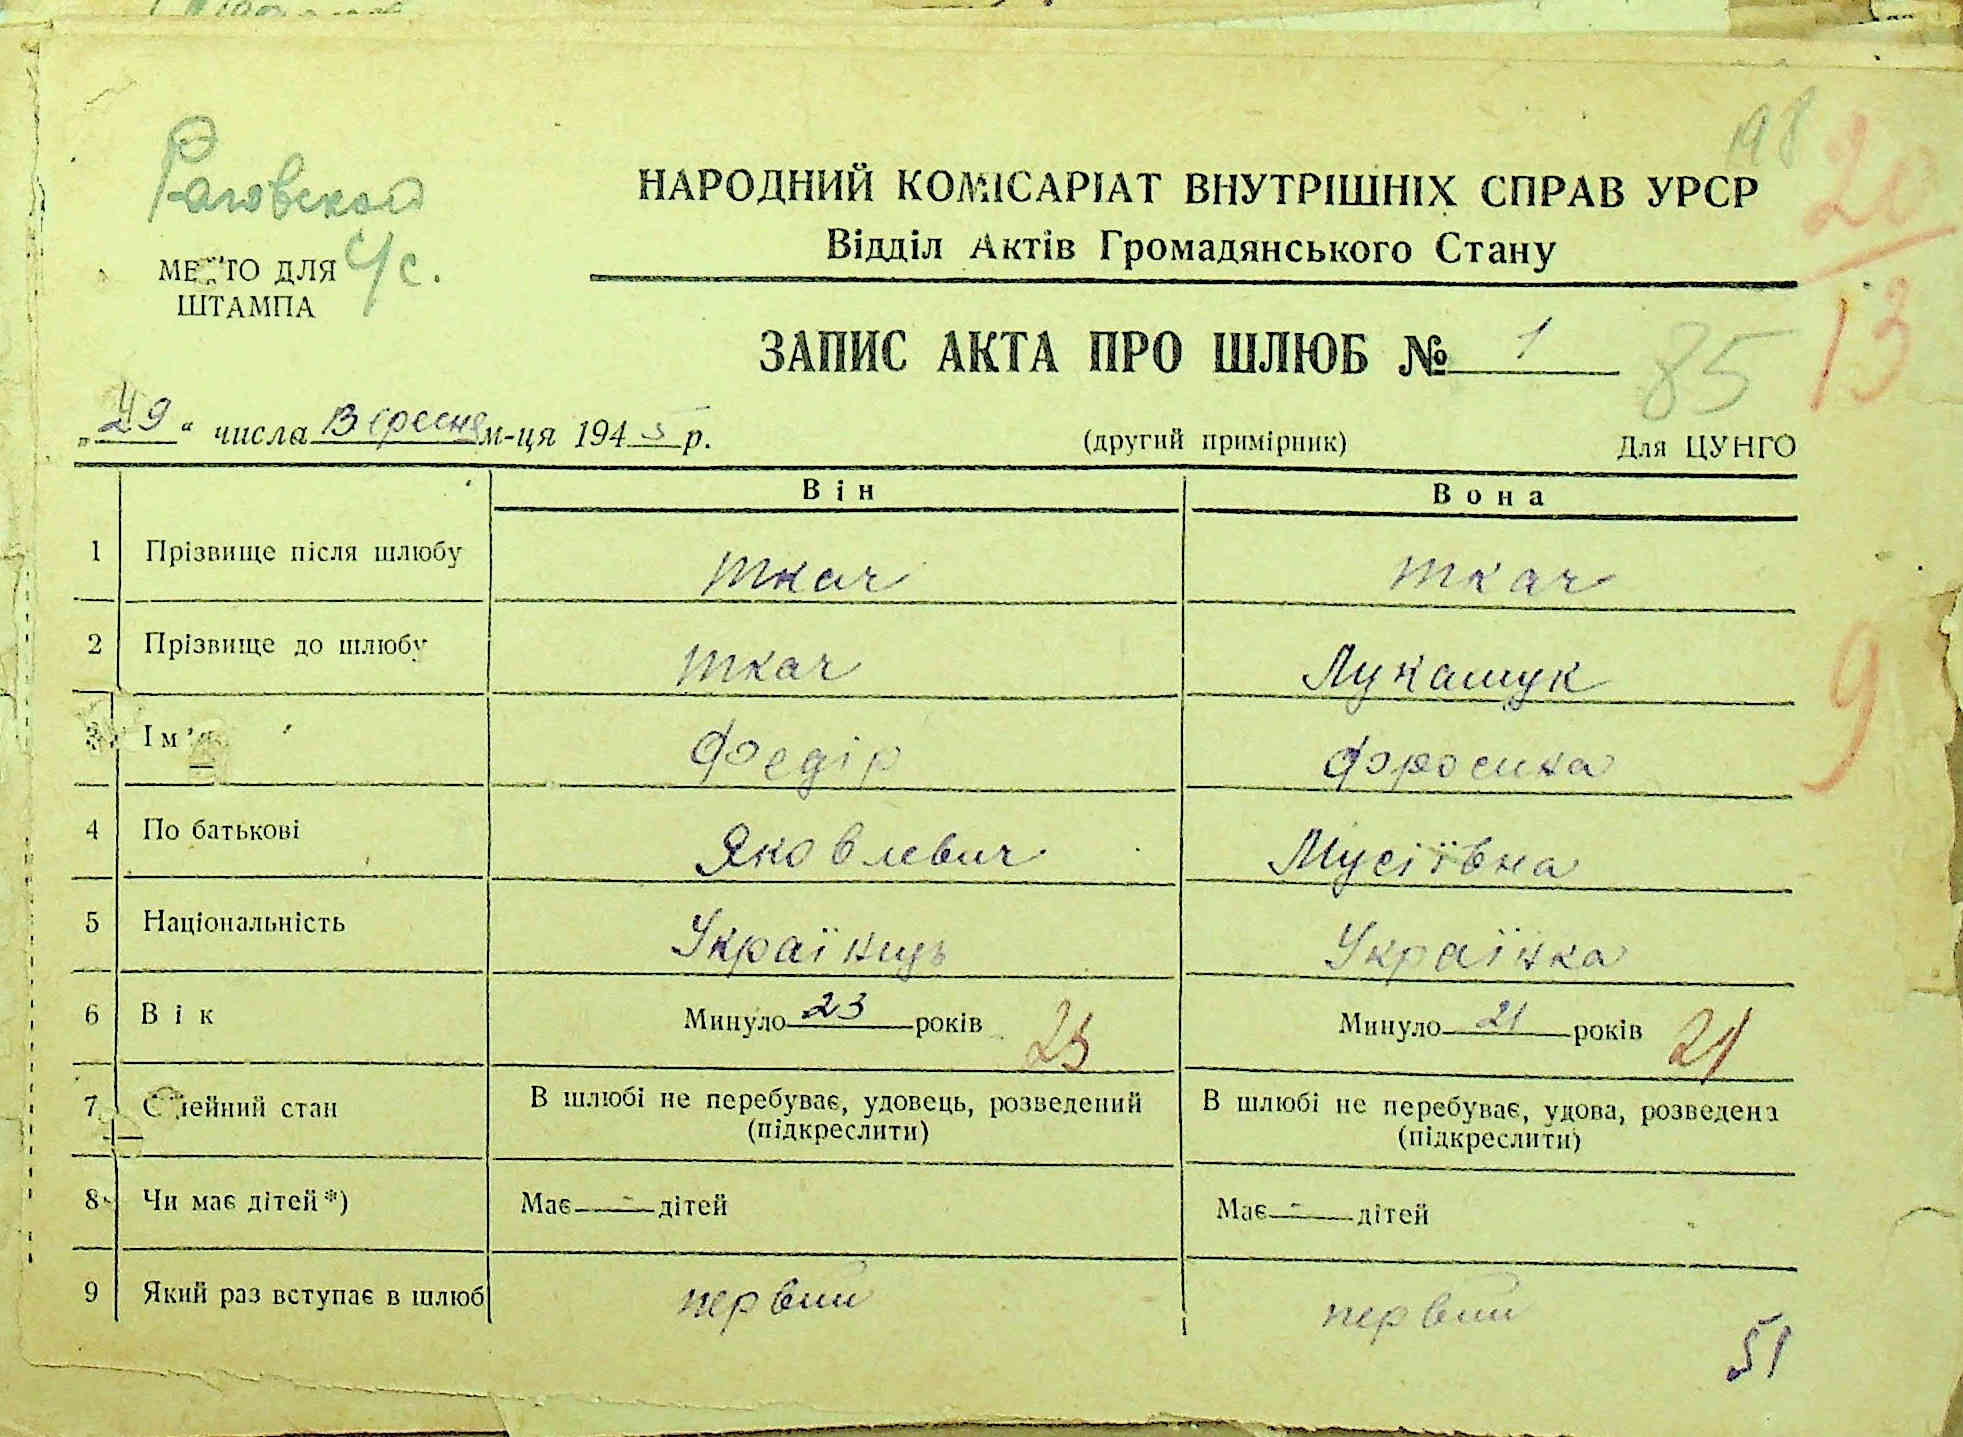 198
20
Раговского
НАРОДНИЙ КОМІСАРІАТ ВНУТРІШНІХ СПРАВ УРСР
Відділ Актів Громадянського Стану
МЕСТО ДЛЯ С/с.
ШТАМПА
13
ЗАПИС АКТА ПРО ШЛЮБ № 1
85
„29“ числа Вересня м-ця 1945 р.
(другий примірник)
Для ЦУНГО
Він Вона
1 Прізвище після шлюбу Ткач Ткач
2 Прізвище до шлюбу Ткач Лукашук
9
3 Ім'я Федір Фросина
4 По батькові Яковлевич Мусіївна
5 Національність Українць Українка
6 Вік Минуло 23 років 23 Минуло 21 років 21
7 Сімейний стан В шлюбі не перебуває, удовець, розведений В шлюбі не перебуває, удова, розведена
(підкреслити) (підкреслити)
8 Чи має дітей*) Має - дітей Має - дітей
9 Який раз вступає в шлюб первий первий
51